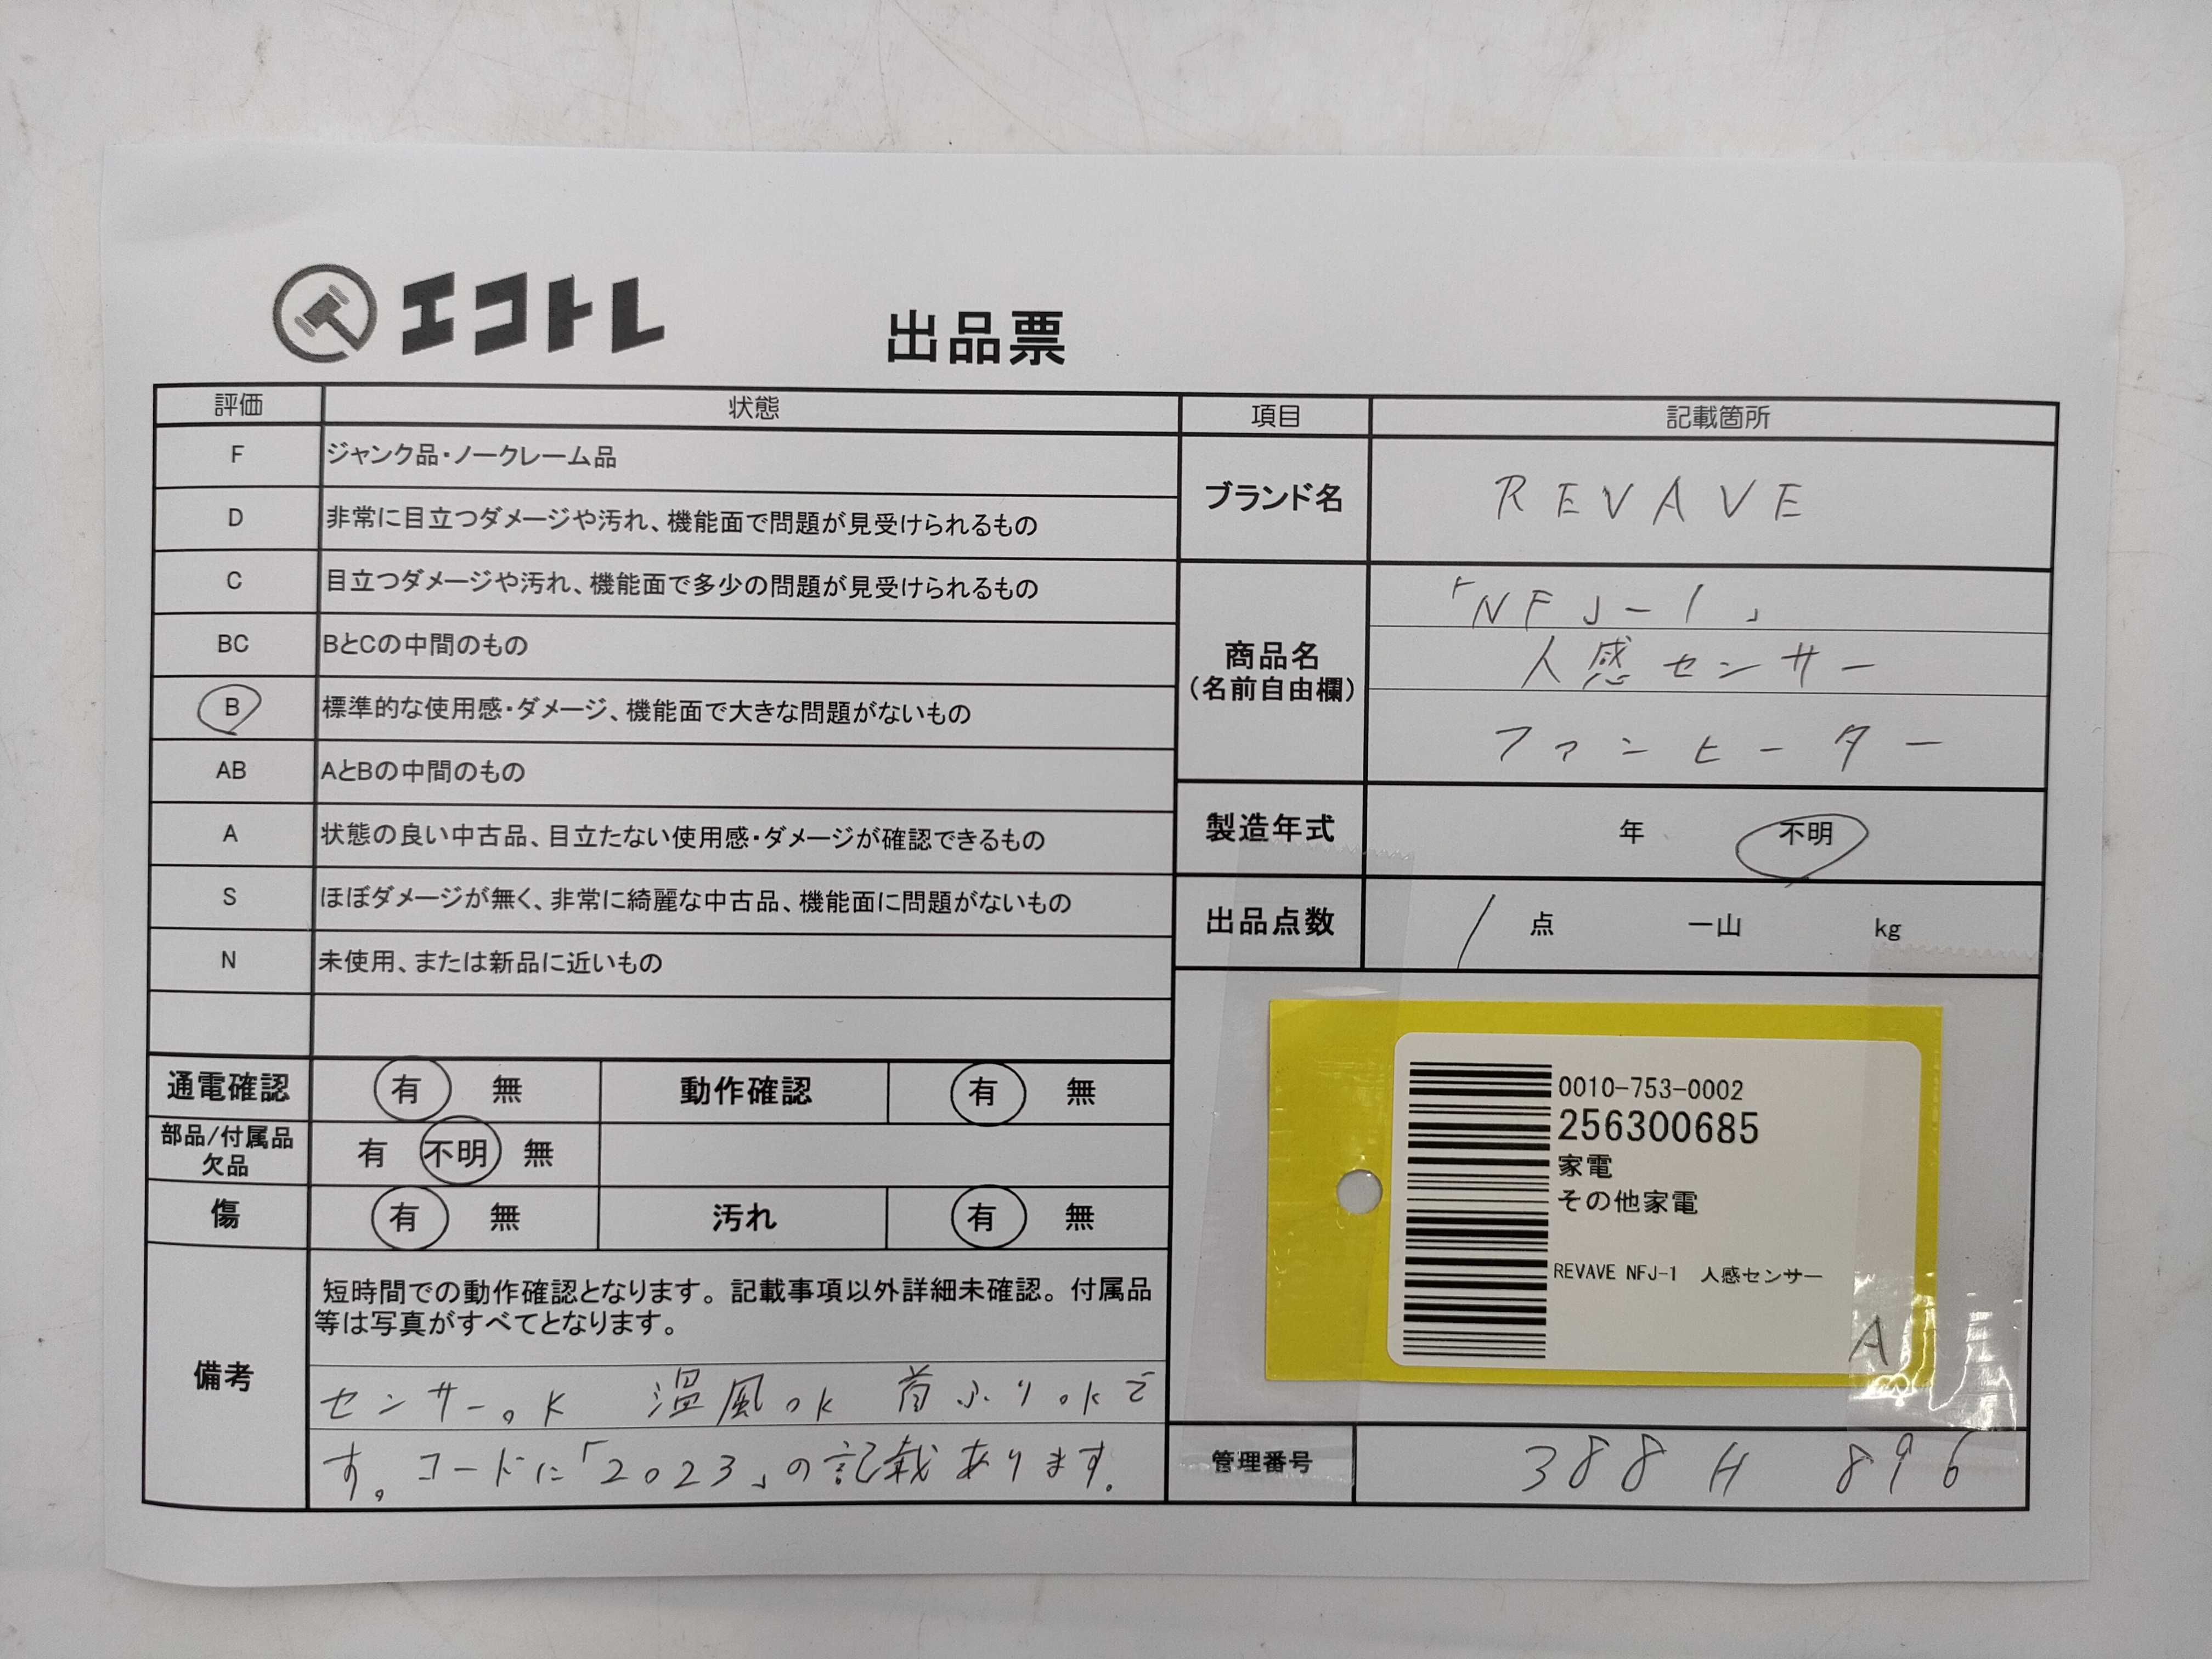 エコトレ
出品票
評価 状態
F ジャンク品・ノークレーム品
D 非常に目立つダメージや汚れ、機能面で問題が見受けられるもの
C 目立つダメージや汚れ、機能面で多少の問題が見受けられるもの
BC BとCの中間のもの
B 標準的な使用感・ダメージ、機能面で大きな問題がないもの
AB AとBの中間のもの
A 状態の良い中古品、目立たない使用感・ダメージが確認できるもの
S ほぼダメージが無く、非常に綺麗な中古品、機能面に問題がないもの
N 未使用、または新品に近いもの
通電確認 有 無 動作確認 有 無
部品/付属品
欠品
有 不明 無
傷 有 無 汚れ 有 無
備考
短時間での動作確認となります。記載事項以外詳細未確認。付属品
等は写真がすべてとなります。
センサーok 温風ok 首ふりokで
す。コードに「2023」の記載あります.
項目 記載箇所
ブランド名 REVAVE
商品名
(名前自由欄)
「NFJ-1」
人感センサー
ファンヒーター
製造年式 年 不明
出品点数 1 点 一山 kg
0010-753-0002
256300685
家電
その他家電
REVAVE NFJ-1 人感センサー
A
管理番号 388 H 896